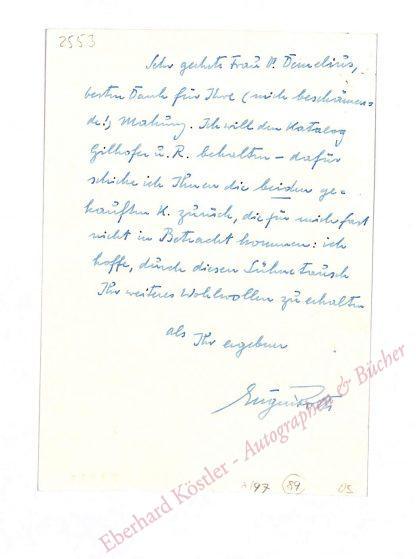 2553
Sehr geehrte Frau D. Demelius,
besten Dank für Ihre (mich beschämen=
de!) Mahnung. Ich will den Katalog
Gilhofer u. R. behalten – dafür
schicke ich Ihnen die beiden ge-
kauften K. zurück, die für mich fast
nicht in Betracht kommen: ich
hoffe, durch diesen Sühnetausch
Ihr weiteres Wohlwollen zu erhalten
als Ihr ergebener
Eugen Roth
Eberhard Köstler - Autographen & Bücher
89